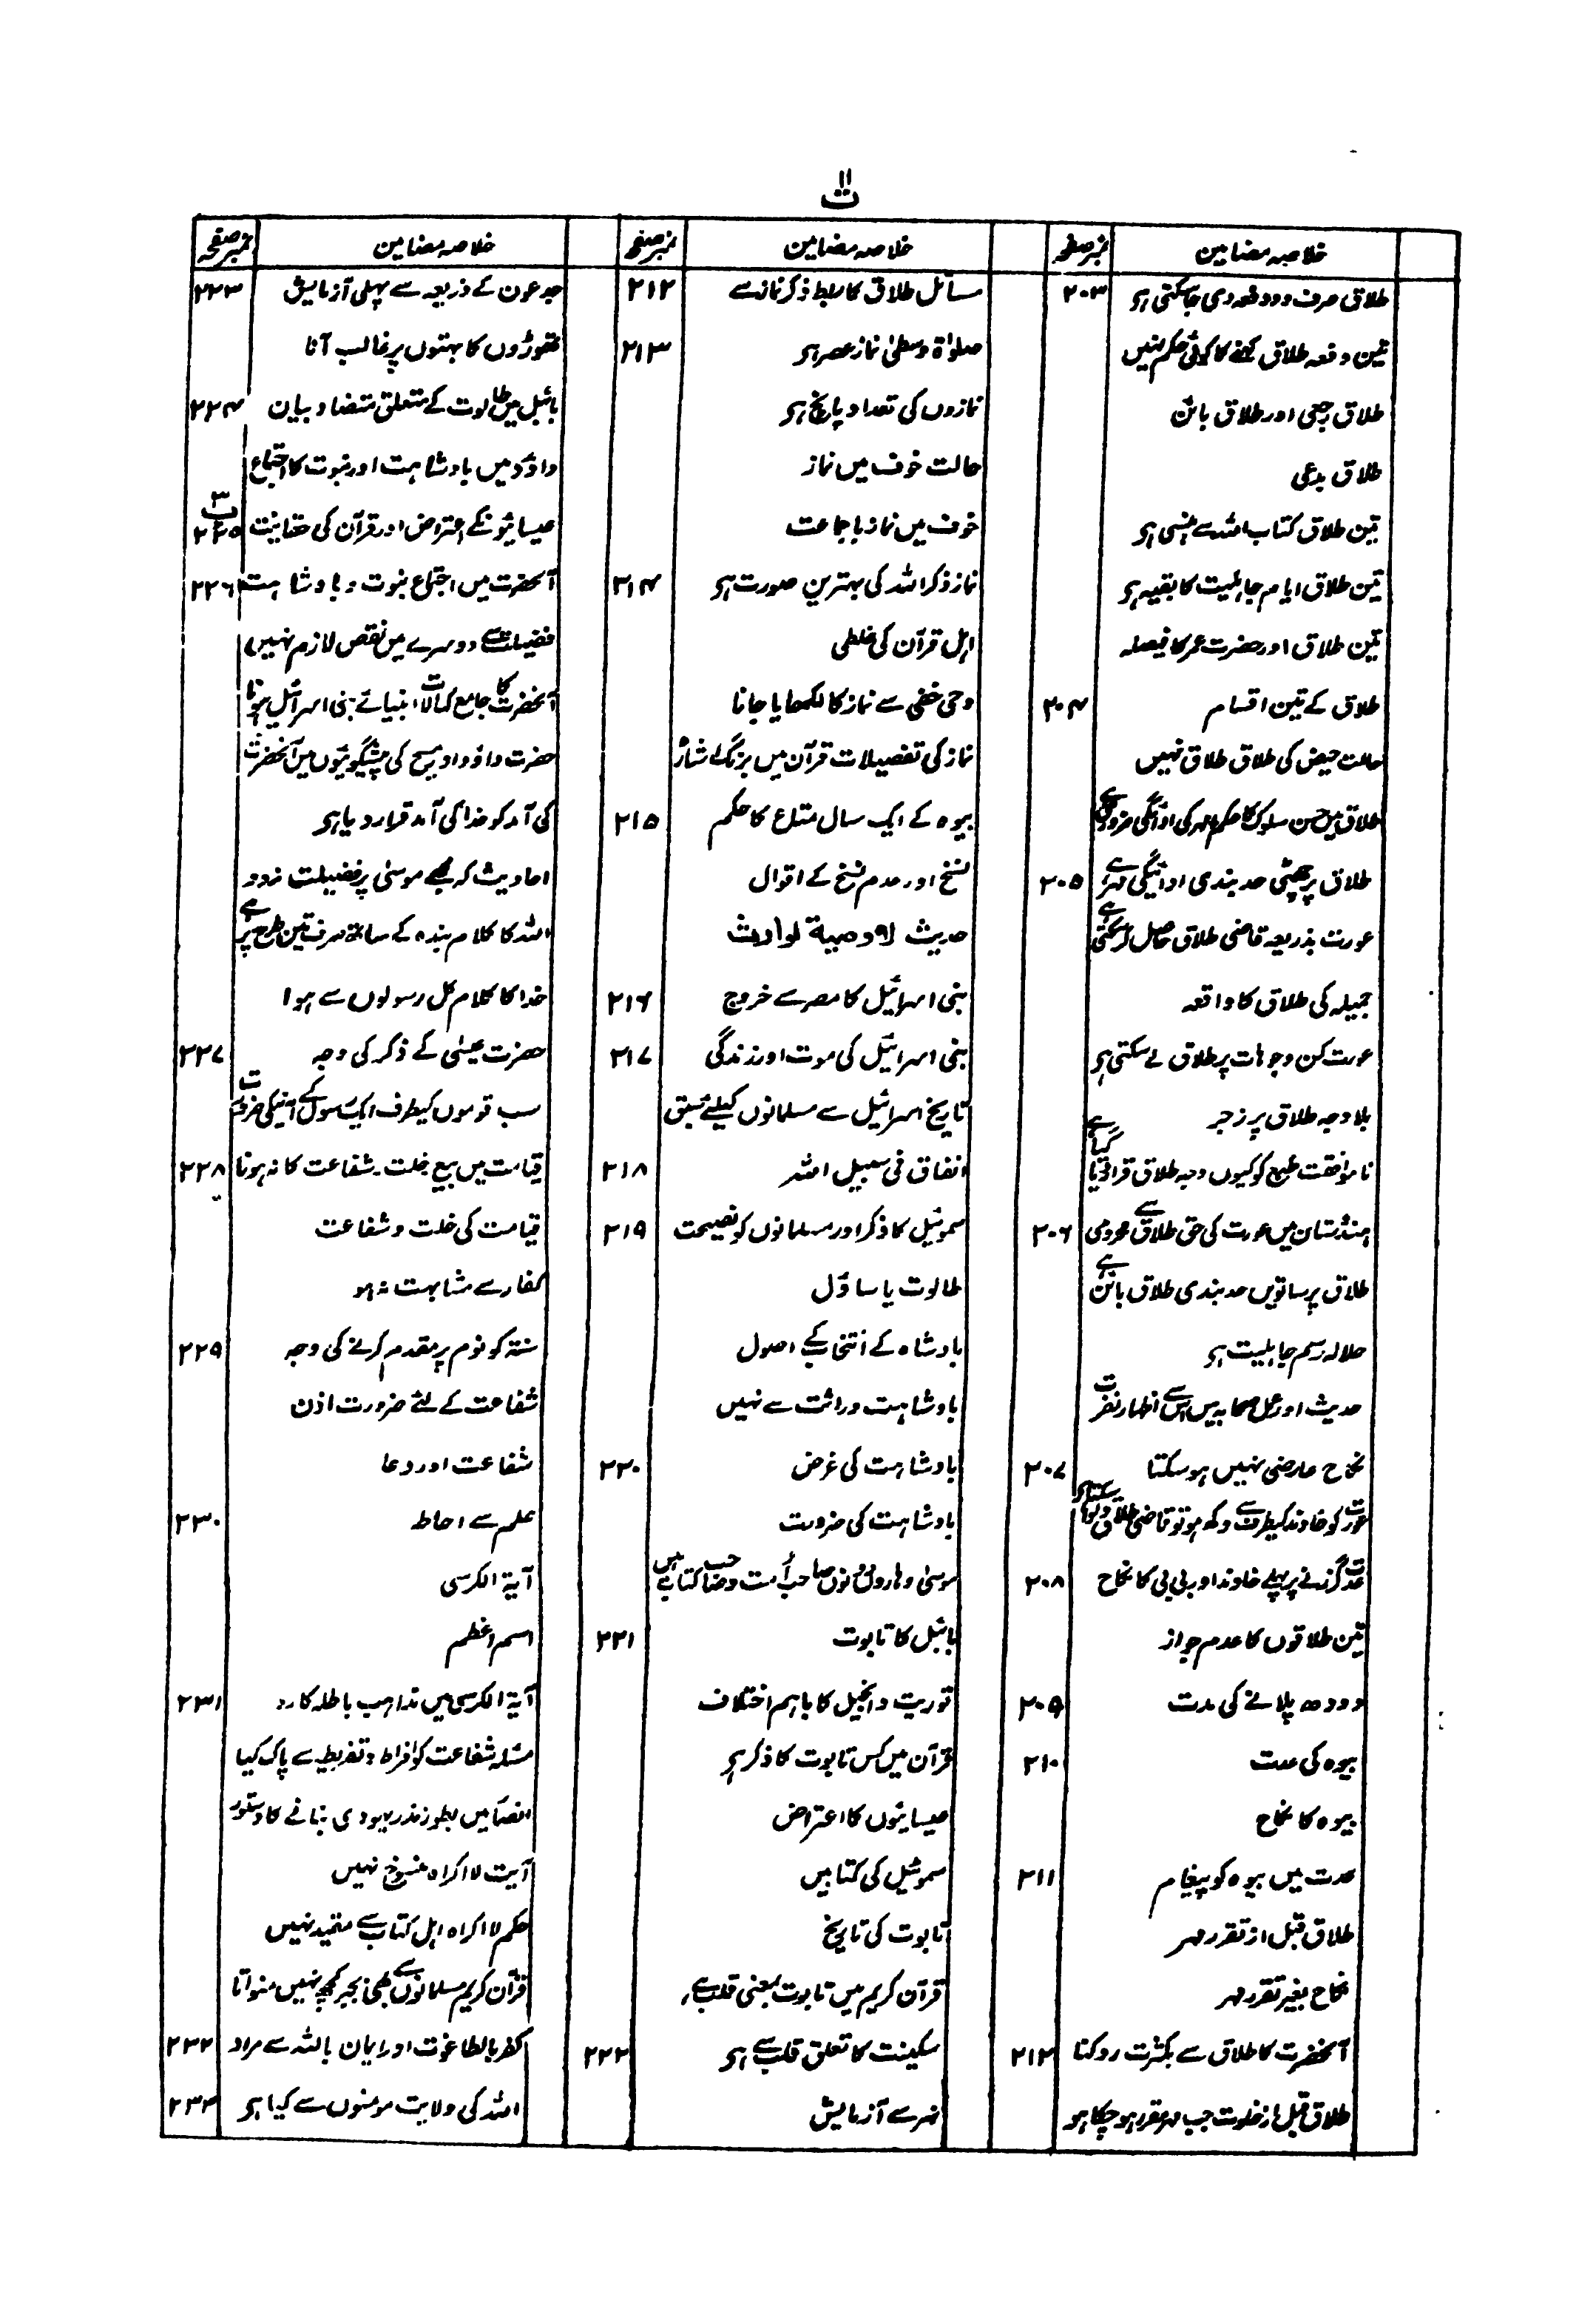 ۱۱
ت
خلاصہ مضامین نمبر صفحہ
طلاق صرف دو دفعہ دی جا سکتی ہے ۲۰۳
تین دفعہ طلاق کہنے کا کوئی حکم نہیں
طلاق رجعی اور طلاق بائن
طلاق بدعی
تین طلاق کتاب اللہ سے ہنسی ہے
تین طلاق ایام جاہلیت کا بقیہ ہے
تین طلاق اور حضرت عمر کا فیصلہ
طلاق کے تین اقسام ۲۰۴
حالت حیض کی طلاق طلاق نہیں
طلاق میں حسن سلوک کا حکم مہر کی ادائگی ضروری ہے
طلاق پر چھٹی حد بندی ادائیگی مہر ہے ۲۰۵
عورت بذریعہ قاضی طلاق حاصل کر سکتی ہے
جمیلہ کی طلاق کا واقعہ
عورت کن وجوہات پر طلاق لے سکتی ہے
بلا وجہ طلاق پر زجر
نا موافقت طبع کو کیوں وجہ طلاق قرار دیا گیا ہے
ہندوستان میں عورت کی حق طلاق سے محرومی ۲۰۶
طلاق پر ساتویں حد بندی طلاق بائن ہے
حلالہ رسم جاہلیت ہے
حدیث اور عمل صحابہ میں اس سے اظہار نفرت
نکاح عارضی نہیں ہو سکتا ۲۰۷
عورت کو خاوند کیطرف سے دکھ ہو تو قاضی طلاق دلوا سکتا ہے
عدت گزرنے پر پہلے خاوند اور بی بی کا نکاح ۲۰۸
تین طلاقوں کا عدم جواز
دودھ پلانے کی مدت ۲۰۹
بیوہ کی عدت ۲۱۰
بیوہ کا نکاح
عدت میں بیوہ کو پیغام ۲۱۱
طلاق قبل از تقرر مہر
نکاح بغیر تقرر مہر
آنحضرت کا طلاق سے بکثرت روکنا ۲۱۲
طلاق قبل از خلوت جب مہر مقرر ہو چکا ہو
خلاصہ مضامین نمبر صفحہ
مسائل طلاق کا ربط ذکر نماز سے ۲۱۲
صلوٰۃ وسطیٰ نماز عصر ہے ۲۱۳
نمازوں کی تعداد پانچ ہے
حالت خوف میں نماز
خوف میں نماز باجماعت
نماز ذکر اللہ کی بہترین صورت ہے ۲۱۴
اہل قرآن کی غلطی
وحی خفی سے نماز کا سکھایا جانا
نماز کی تفصیلات قرآن میں برنگ اشارہ
بیوہ کے ایک سال متاع کا حکم ۲۱۵
نسخ اور عدم نسخ کے اقوال
حدیث لا وصیۃ لوارث
بنی اسرائیل کا مصر سے خروج ۲۱۶
بنی اسرائیل کی موت اور زندگی ۲۱۷
تاریخ اسرائیل سے مسلمانوں کیلئے سبق
انفاق فی سبیل اللہ ۲۱۸
سموئیل کا ذکر اور مسلمانوں کو نصیحت ۲۱۹
طالوت یا ساؤل
بادشاہ کے انتخاب کے اصول
بادشاہت وراثت سے نہیں
بادشاہت کی غرض ۲۲۰
بادشاہت کی ضرورت
موسیٰ و ہارون دونوں صاحب امت و صاحب کتاب ہیں
بائبل کا تابوت ۲۲۱
توریت و انجیل کا باہم اختلاف
قرآن میں کس تابوت کا ذکر ہے
عیسائیوں کا اعتراض
سموئیل کی کتابیں
تابوت کی تاریخ
قرآن کریم میں تابوت بمعنی قلب ہے
سکینت کا تعلق قلب سے ہے ۲۲۲
نہر سے آزمایش
خلاصہ مضامین نمبر صفحہ
جدعون کے ذریعہ سے پہلی آزمایش ۲۲۳
تھوڑوں کا بہتوں پر غالب آنا
بائبل میں طالوت کے متعلق متضاد بیان ۲۲۴
داؤد میں بادشاہت اور نبوت کا اجتماع
عیسائیونکے اعتراض اور قرآن کی حقانیت ۲۲۵
آنحضرت میں اجتماع نبوت و بادشاہت ۲۲۶
فضیلت سے دوسرے میں نقص لازم نہیں
آنحضرت کا جامع کمالات انبیائے بنی اسرائیل ہونا
حضرت داؤد اور مسیح کی پیشگوئیوں میں آنحضرت
کی آمد کو خدا کی آمد قرار دیا ہے
احادیث کہ مجھے موسیٰ پر فضیلت نہ دو
اللہ کا کلام بندہ کے ساتھ صرف تین طرح پر ہے
خدا کا کلام کل رسولوں سے ہوا
حضرت عیسیٰ کے ذکر کی وجہ ۲۲۷
سب قوموں کیطرف ایک رسول کے آنیکی ضرورت
قیامت میں بیع خلت۔ شفاعت کا نہ ہونا ۲۲۸
قیامت کی خلت و شفاعت
کفار سے مشابہت نہ ہو
سنۃ کو نوم پر مقدم کرنے کی وجہ ۲۲۹
شفاعت کے لئے ضرورت اذن
شفاعت اور دعا
علم سے احاطہ ۲۳۰
آیۃ الکرسی
اسم اعظم
آیۃ الکرسی میں مذاہب باطلہ کا رد ۲۳۱
مسئلہ شفاعت کو افراط و تفریط سے پاک کیا
انصار میں بطور نذر یہودی بنانے کا دستور
آیت لا اکراہ منسوخ نہیں
حکم لا اکراہ اہل کتاب سے مقید نہیں
قرآن کریم مسلمانوں سے بھی بجبر کچھ نہیں منواتا
کفر بالطاغوت اور ایمان باللہ سے مراد ۲۳۲
اللہ کی ولایت مومنوں سے کیا ہے ۲۳۳